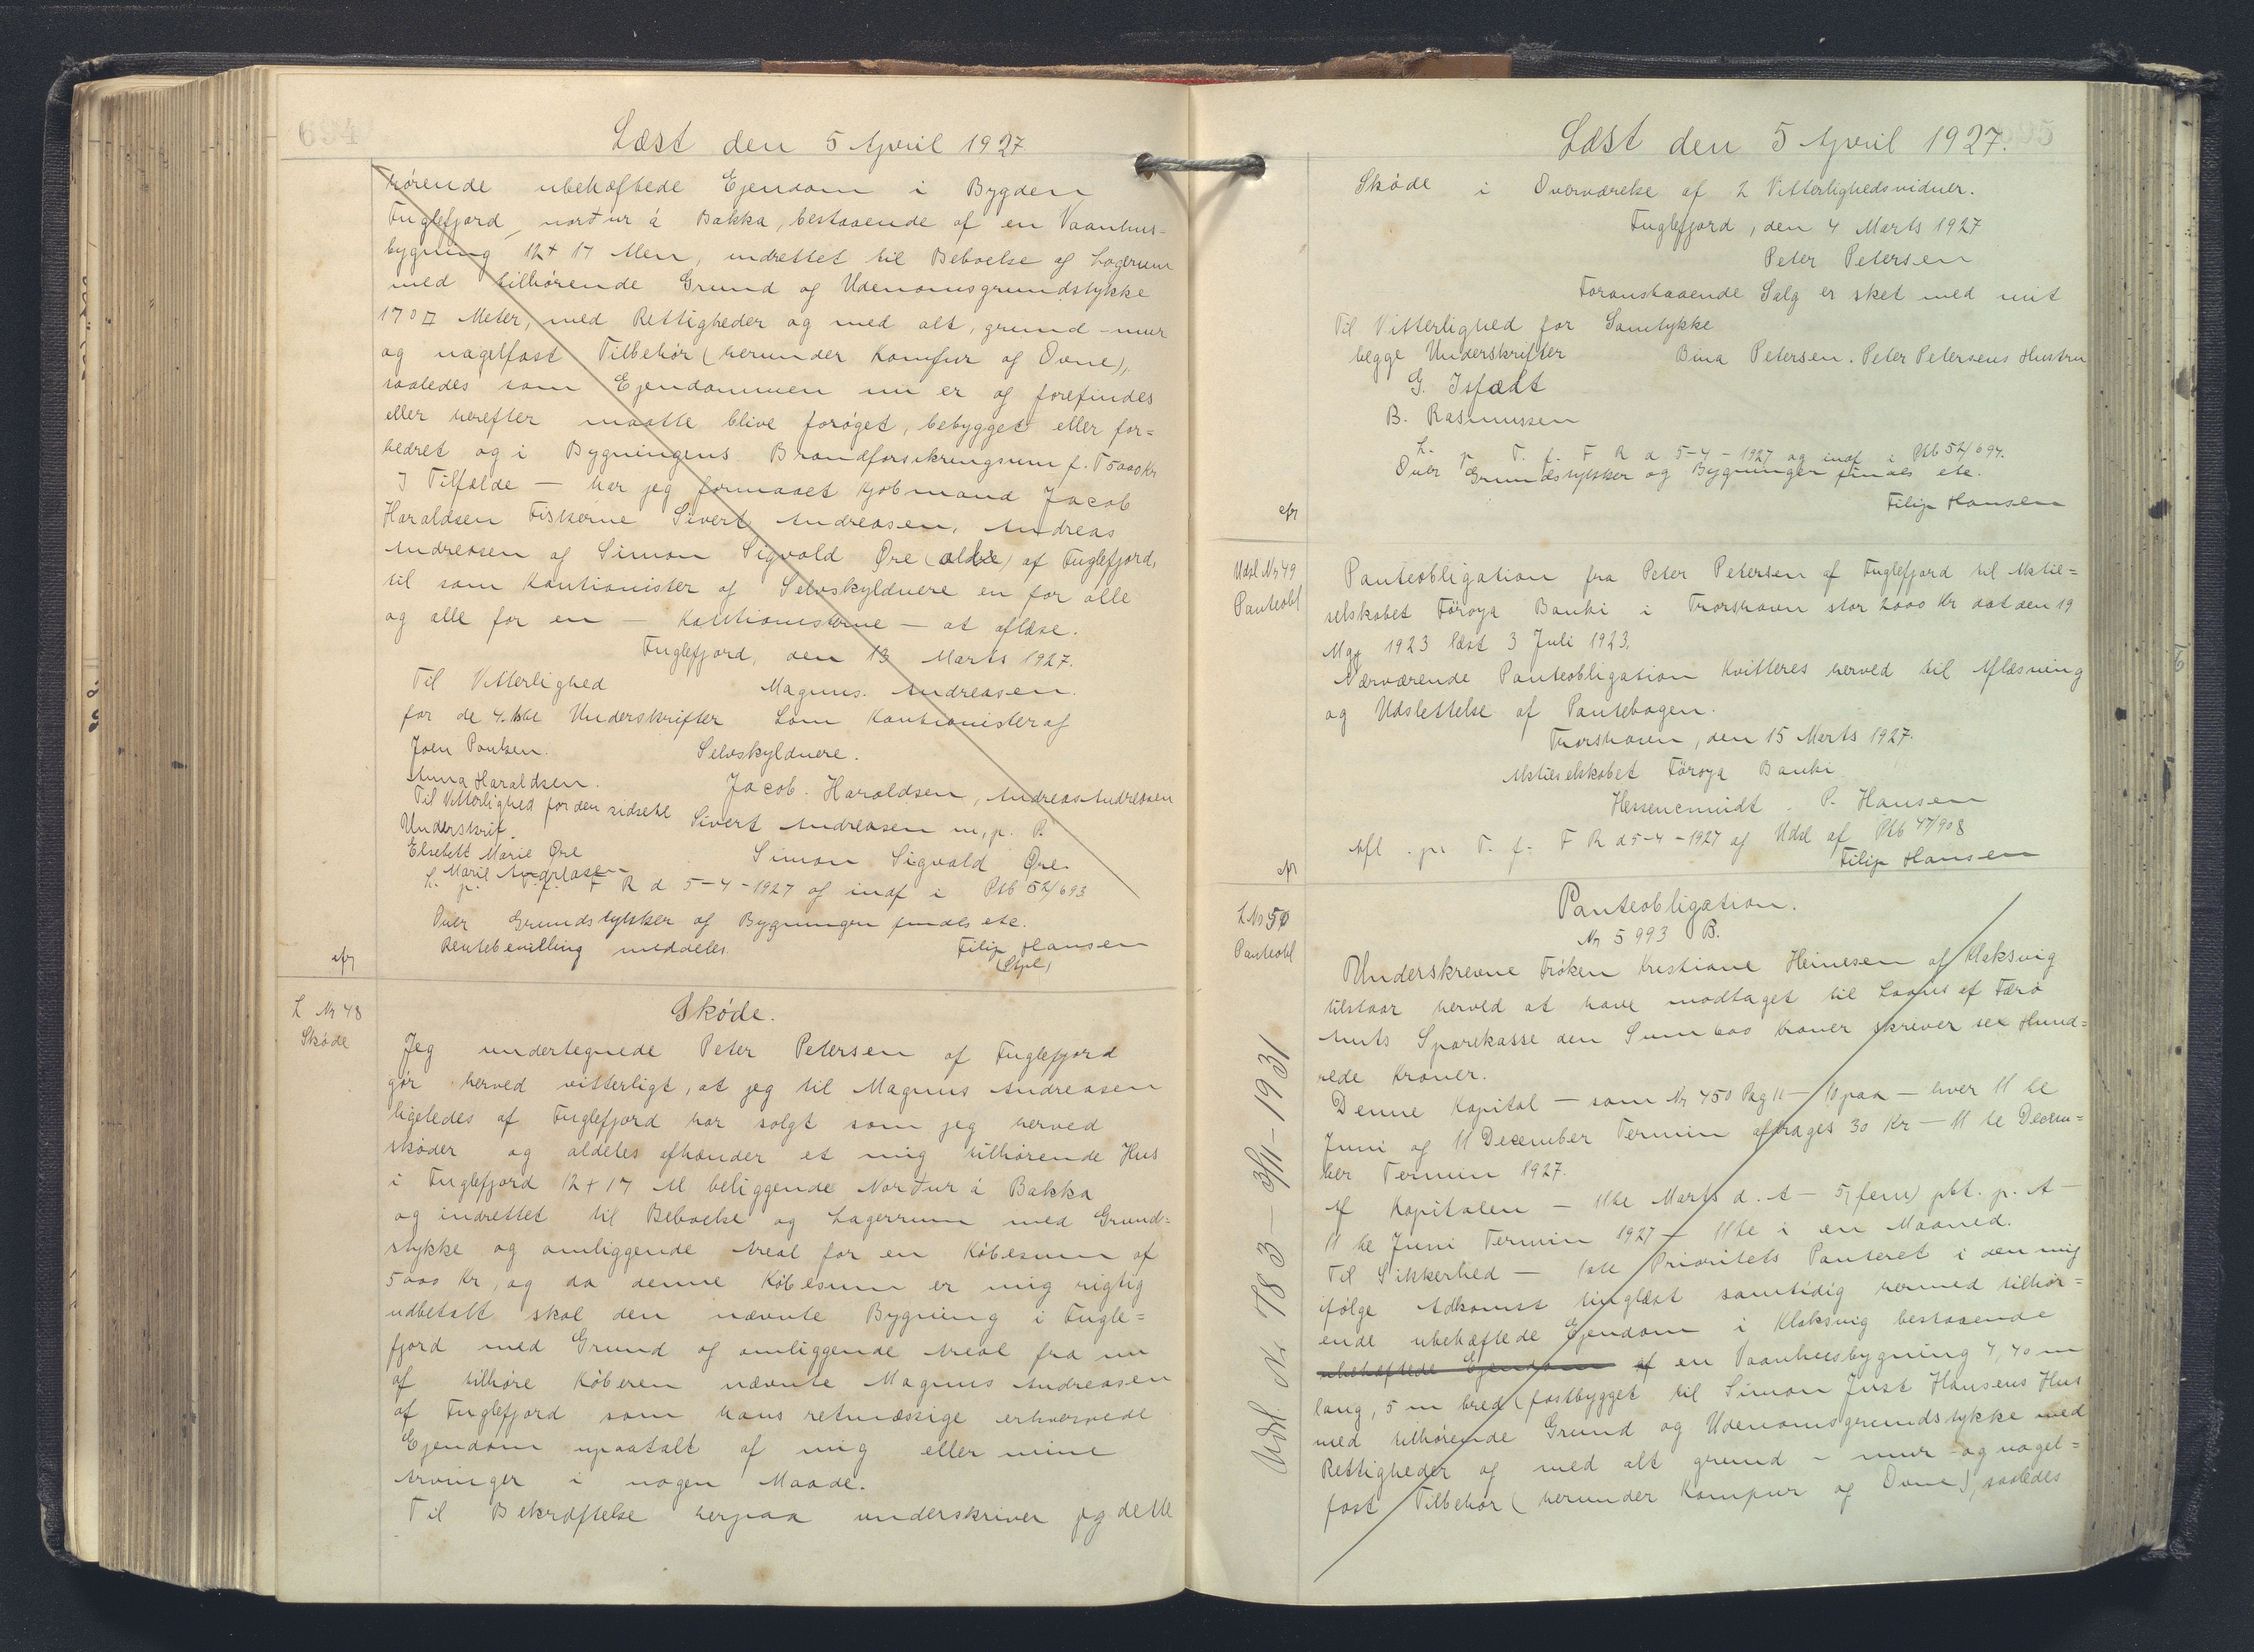 694
Læst den 5 April 1927
hørende ubehæftede Ejendom i Bygden
Fuglefjord, nordur á Bakka, bestaaende af en Vaanhus-
bygning 12 + 17 Alen, indrettet til Beboelse og Lagerum
med tilhørende Grund og Udenomsgrundstykke
170 □ Meter, med Rettigheder og med alt, grund-mur
og nagelfast Tilbehør (herunder Komfur og Ovne),
saaledes som Ejendommen nu er og forefindes
eller herefter maatte blive forøget, bebygget eller for=
bedret og i Bygningens Brandforsikringsum f. T 5000 Kr
I Tilfælde — har jeg formaaet Kjøbmand Jacob
Haraldsen Fiskerne Sivert Andreasen, Andreas
Andreasen og Simon Sigvald Øre (ældre) af Fuglefjord,
til som Kautionister og Selvskyldnere en for alle
og alle for en — Kautionisterne — at aflæse.
Fuglefjord, den 13 Marts 1927.
Til Vitterlighed Magnus Andreasen.
for de 4. Underskrifter Som Kautionister og
Joen Poulsen. Selvskyldnere.
Anna Haraldsen. Jacob. Haraldsen, Andreas Andreasen
Til Vitterlighed for den sidste
Underskrif. Sivert Andreasen m. p. P.
Elsebett Marie Øre Simon Sigvald Øre
Marie Andreasen
L. p. T. f. F R d 5-4-1927 og indf i Ptb 52/693
Over Grundstykker og Bygningen findes etc.
Rentebevilling meddeles. Filip Hansen
(Stpl)
L Nr 48
Skøde
Skøde.
Jeg undertegnede Peter Petersen af Fuglefjord
gør herved vitterligt, at jeg til Magnus Andreasen
ligeledes af Fuglefjord har solgt som jeg herved
skøder og aldeles afhænder et mig tilhørende Hus
i Fuglefjord 12 + 17 Al beliggende Nordur á Bakka
og indrettet til Beboelse og Lagerrum med Grund=
stykke og omliggende Areal for en Købesum af
5000 Kr, og da denne Købesum er mig rigtig
udbetalt skal den nævnte Bygning i Fugle=
fjord med Grund og omliggende Areal fra nu
af tilhøre Køberen nævnte Magnus Andreasen
af Fuglefjord som hans retmæssige erhvervede
Ejendom upaatalt af mig eller mine
Arvinger i nogen Maade.
Til Bekræftelse herpaa underskriver jeg dette
695
Læst den 5 April 1927.
Skøde i Overværelse af 2 Vitterlighedsvidner.
Fuglefjord, den 4 Marts 1927
Peter Petersen
Foranstaaende Salg er sket med mit
Til Vitterlighed for Samtykke
begge Underskrifter Bina Petersen. Peter Petersens Hustru
G. Isfædt
B. Rasmussen
L. p. T. f. F R d 5-4-1927 og indf i Ptb 52/694.
Over Grundstykker og Bygninger findes etc.
Filip Hansen
Udsl Nr 49
Panteobl
Panteobligation fra Peter Petersen af Fuglefjord til Aktie=
selskabet Føroya Banki i Thorshavn stor 2000 Kr dat den 19
Maj 1923 læst 3 Juli 1923.
Nærværende Panteobligation Kvitteres herved til Aflæsning
og Udslettelse af Pantebogen.
Thorshavn, den 15 Marts 1927.
Aktieselskabet Føroya Banki
Hessencmidt. P. Hansen
Afl. p. T. f. F R d 5-4-1927 og Udsl af Ptb 47/908
Filip Hansen
L Nr 50
Panteobl
Panteobligation.
Nr 5993 B.
Underskrevne Frøken Kristiane Heinesen af Klaksvig
tilstaar herved at have modtaget til Laans af Færø
Amts Sparekasse den Sum 600 Kroner skriver sex Hund=
rede Kroner.
Denne Kapital — som Nr 450 Pag 11 — 10 paa — hver 11 te
Juni og 11 December Termin afdrages 30 Kr — 11 te Decem=
ber Termin 1927.
Af Kapitalen — 11te Marts d. A — 5, fem) pCt. p. A —
11 te Juni Termin 1927 — 11te i en Maaned.
Til Sikkerhed — 1ste Prioritets Panteret i den mig
ifølge Adkomst tinglæst samtidig hermed tilhør=
ende ubehæftede Ejendom i Klaksvig bestaaende
ubehæftede Ejendom af en Vaanhusbygning 7,40 m
lang, 5 m bred (fastbygget til Simon Just Hansens Hus
med tilhørende Grund og Udenomsgrundstykke med
Rettigheder og med alt grund - mur - og nagel=
fast Tilbehør (herunder Kompur og Ovne), saaledes
Udsl. Nr 783 — 3/11-1931